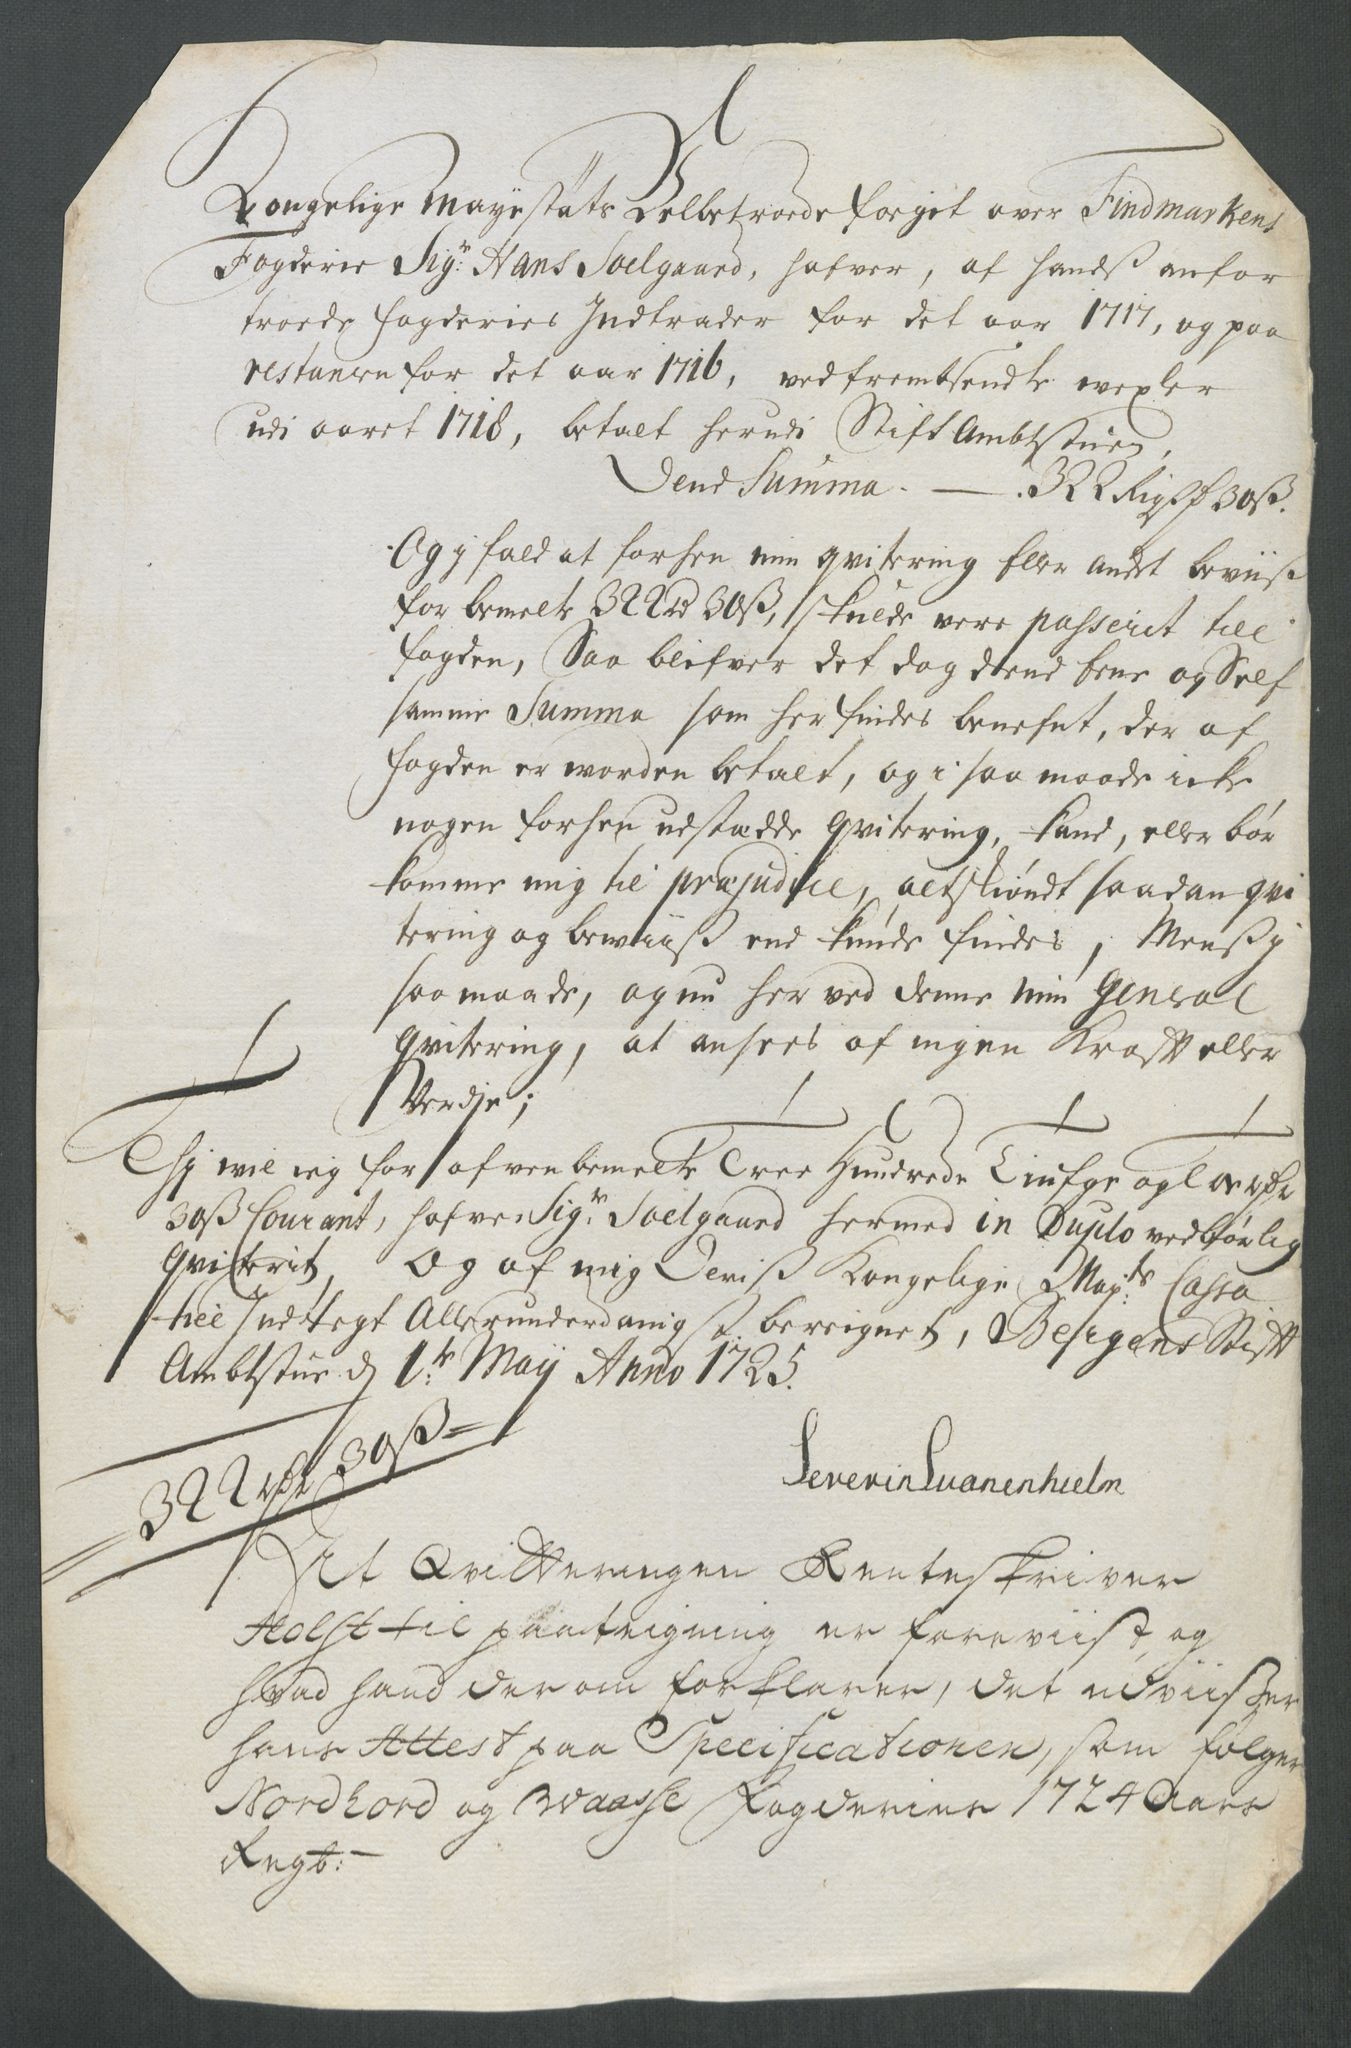 Kongelige Mayestäts Velbetroede foget over Findmarkens
Fogderie Sigr: Hans Soelgaard, hafver, af handß anfor
troede fogderies Indtrader for det aar 1717, og paa
restancen for det aar 1716, ved fremsendte wexler
udi aaret 1718, betalt herudi Stift Ambtstuen,
Dend Summa. — 322 Rigsdr 30ß.
Og i fald at forhen min qvitering Eller andet beviiß
for bemelte 322 rd 30ß, skulde vere passerit till
fogden, Saa blifver det dog dend Eene og Self
samme Summa som her findes benefnt, der af
fogden er worden betalt, og i saa maade icke
nogen forhen udstædde Qvitering, kand, eller bør
komme mig til præjudice, altskiøndt saadan qvi
tering og bewiiß end kunde findes, Menß i
saa maade, og nu her ved denne min General
Qvitering, at ansees af ingen Krafft eller
Verdie;
Thj wil ieg for ofvenbemelte Tree Hundrede Tiufge og Toe rdr
30ß Courant, hafve Sigr: Soelgaard hermed in Duplo vedbørlig
Qviterit, Og af mig Deriß Kongelige Mayts: Cassa
till Indtegt Allerunderdanigst bereignet, Bergens Stifft
Ambtstue d 1te: Maij Anno 1725.
322 rdr 30ß
Severin Svanenhielm
At Qvitteringen Renteskriver
Holst til paateigning er foreviist, og
hvad hand derom forklarer, det udviiser
hans Attest paa Specificationen, som følger
Nordhord og Waasse Fogderies 1724 Aars
Regb: